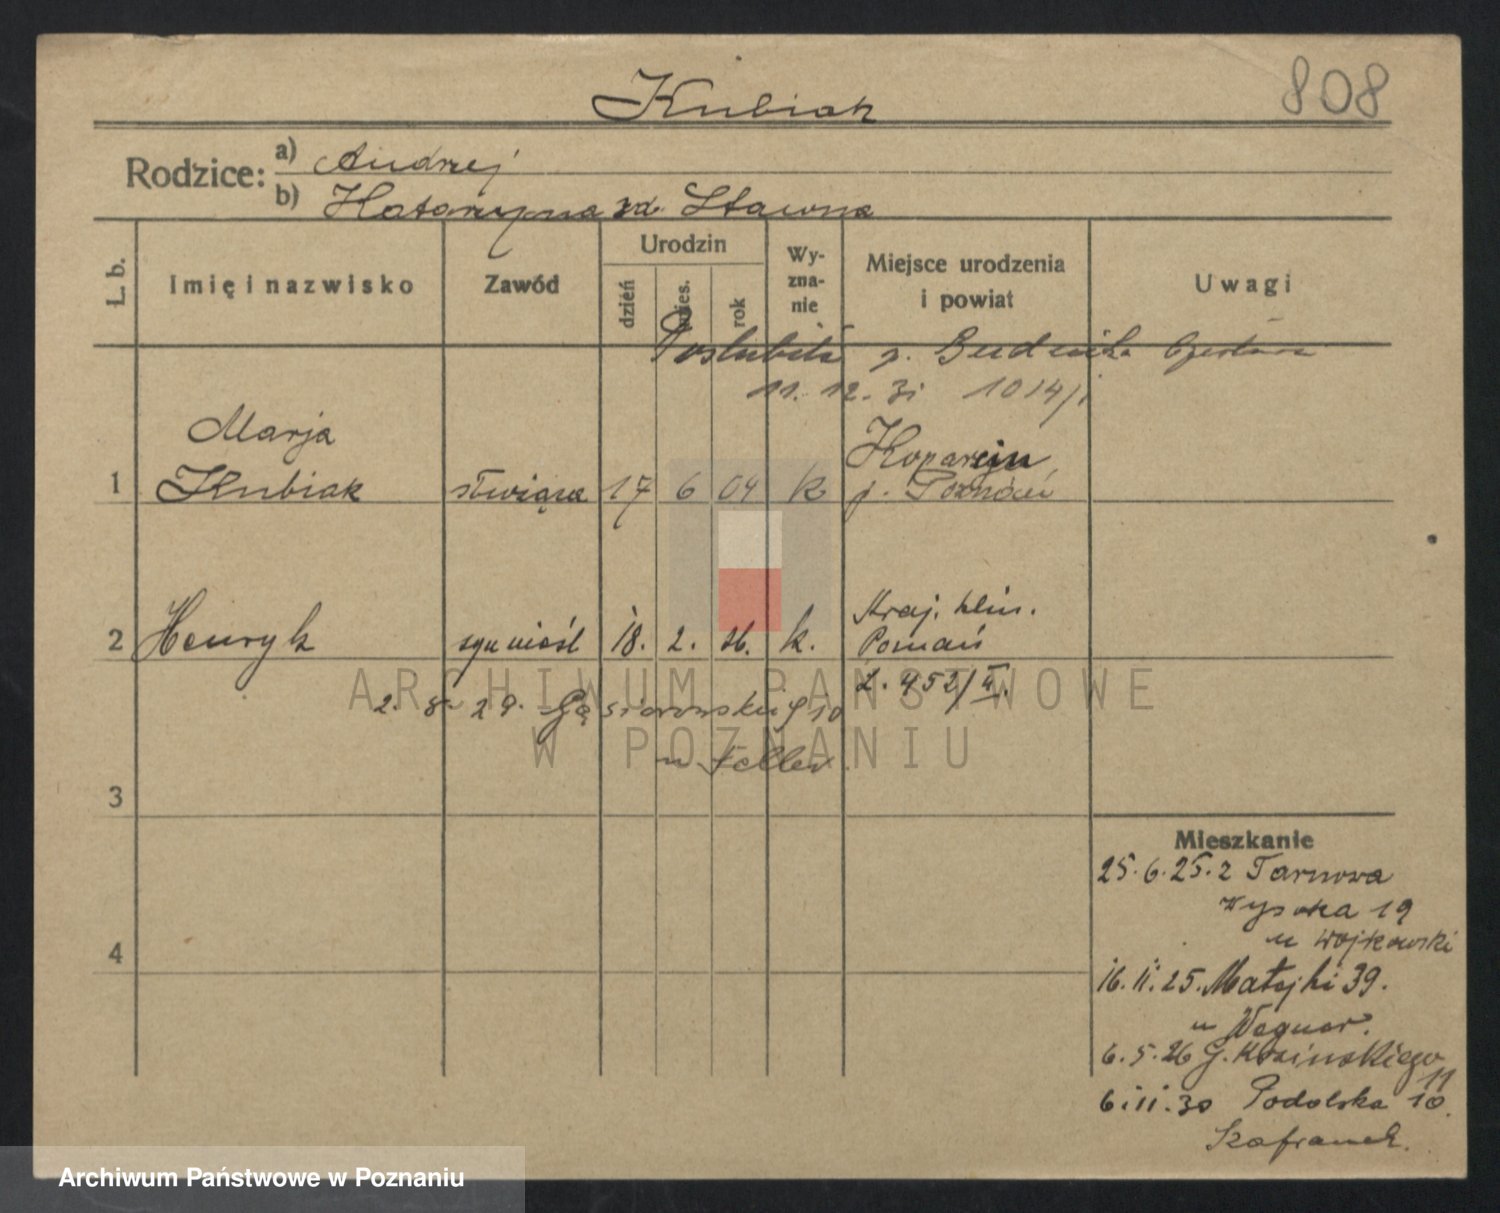 Kubiak
808
Rodzice:
a) Andrzej
b) Katarzyna zd. Stawna
L. b.
Imię i nazwisko
Zawód
Urodzin
dzień
mies.
rok
Wy-
zna-
nie
Miejsce urodzenia
i powiat
Uwagi
Poślubiła p. Budnika
11. 12. 31 1014/
Marja
1 Kubiak służąca 17 6 04 k
p. Poznań
2 Henryk syn nieśl 18. 2. 26. k.
Kraj. klin.
Poznań
L. 452/II.
2. 8. 29. Gąsiorowskich 10
u Feller
3
4
Mieszkanie
25. 6. 25. z Tarnowa
Wysoka 19
u Wojkowski
16. 11. 25. Matejki 39.
u Wagner.
6. 5. 26 G. Kosinskiego
11
6. 11. 30 Podolska 10.
Szafranek.
ARCHIWUM PAŃSTWOWE
W POZNANIU
Archiwum Państwowe w Poznaniu